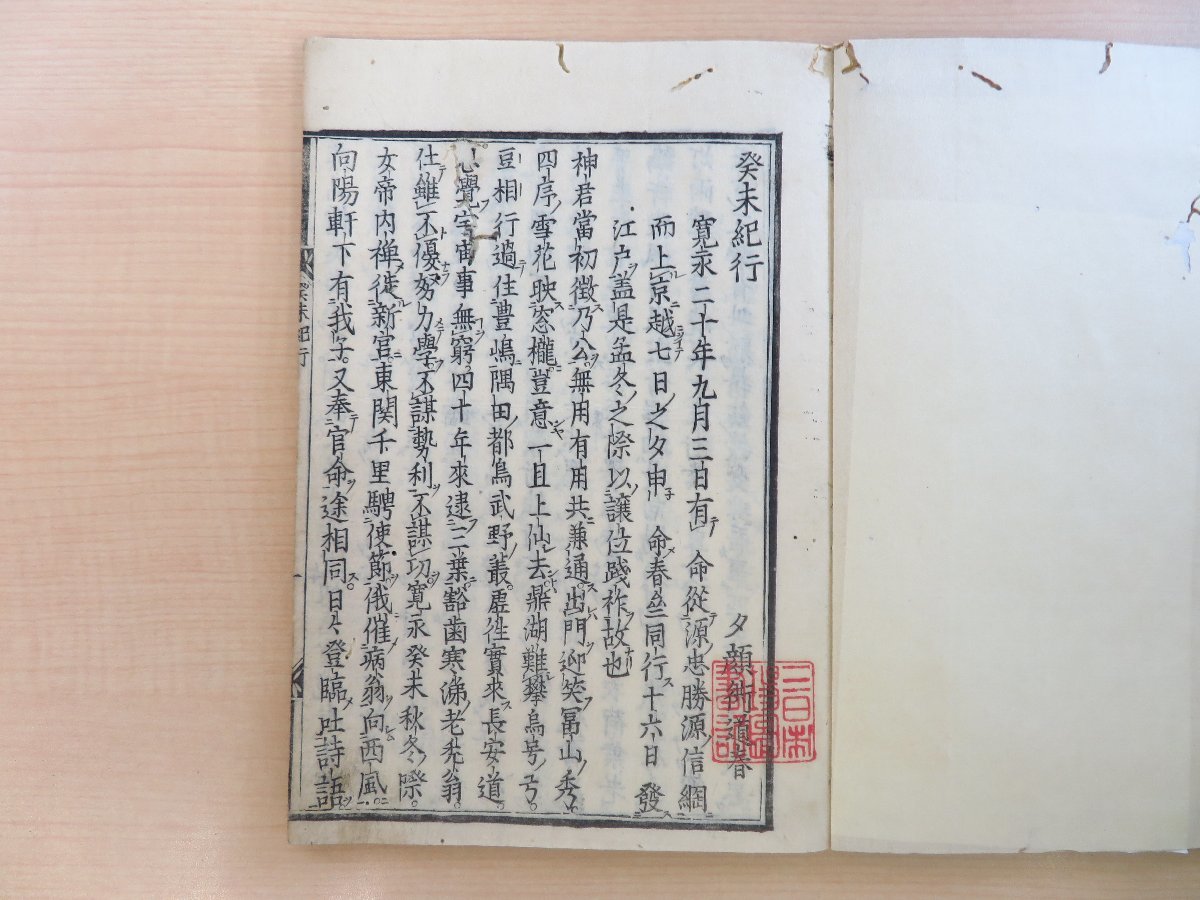 癸未紀行
夕顔衖道春
寛永二十年九月三日有 命從源忠勝源信綱
而上京越七日之夕申 命春竺同行十六日發
江户盖是孟冬之際以讓位踐祚故也
神君當初徵乃公無用有用共兼通出門迎笑冨山秀
四序雪花映窓櫳豈意一旦上仙去鼎湖難攀烏号弓
豆相行過住豊嶋隅田都鳥武野叢虚徃實來長安道
心覺宇宙事無窮四十年來逮三葉豁齒寒涕老禿翁
仕雖不優努力學不謀勢利不謀功寛永癸未秋冬際
女帝内禅徒新宮東関千里騁使節俄催病翁向西風
向陽軒下有我子又奉官命途相同日〻登臨吐詩語
癸未紀行